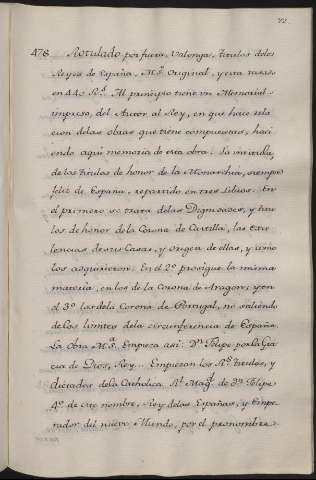 72.
478. Rotulado por fuera, Valonga, Titulos delos
Reyes de España. M.S. Original, y esta tasado
en 440 R.s Al principio tiene un Memorial
impreso, del Autor al Rey, en que hace rela
cion delas obras que tiene compuestas, haci
endo aqui memoria de esta obra: la intitula,
de los Titulos de honor de la Monarchia, siempre
feliz de España, repartido en tres Libros. En
el primero se trata delas Dignidades, y titu
los de honor de la Corona de Castilla, las exce
lencias de sus Casas, y origen de ellas, y como
los adquirieron: En el 2º prosigue la misma
materia, en los de la Corona de Aragon; y en
el 3º los dela Corona de Portugal, no saliendo
de los limites dela circunferencia de España.
La Obra M.S.a Empieza asi: Dn. Felipe por la Gra
cia de Dios, Rey. Empiezan los R.s titulos, y
dictados de la Catholica R.l Mag.d de Dn. Felipe
4º de este nombre, Rey delas Españas; y Empe
rador del nuevo Mundo, por el pronombre